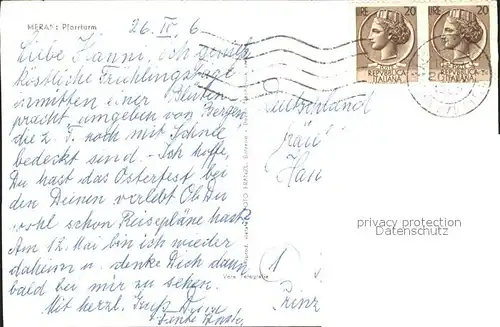 MERAN: Pfarrturm
26. IV. 6
Liebe Hanni, ich genieße
köstliche Frühlingstage
inmitten einer Blüten-
pracht umgeben von Bergen,
die z. T. noch mit Schnee
bedeckt sind. - Ich hoffe,
Du hast das Osterfest bei
den Deinen verlebt. Ob Du
wohl schon Reisepläne hast?
Am 12. Mai bin ich wieder
daheim u. denke Dich dann
bald bei mir zu sehen.
Mit herzl. Gruß Deine
Vera Fotografia
20
REPVBBLICA
ITALIANA
20
REPVBBLICA
ITALIANA
Deutschland
Fräu
Han
1
Prinz
privacy protection
Datenschutz